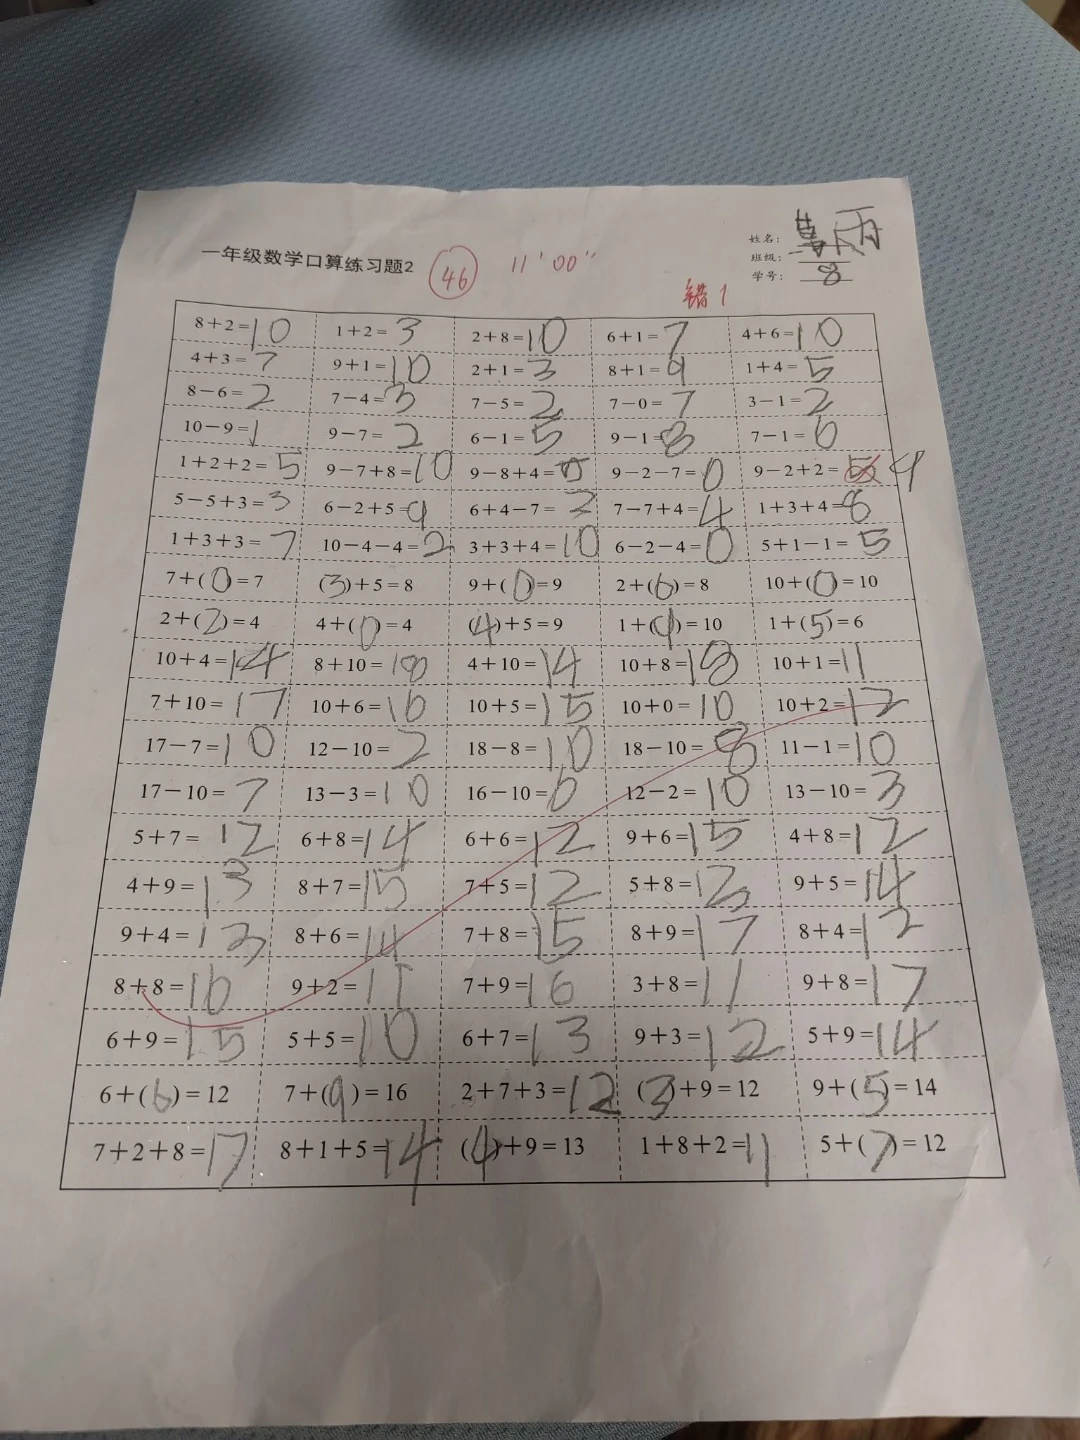 一年级数学口算练习题2 46 11'00" 姓名: 雨
班级:
错1 学号: 8
8+2=10 1+2=3 2+8=10 6+1=7 4+6=10
4+3=7 9+1=10 2+1=3 8+1=9 1+4=5
8-6=2 7-4=3 7-5=2 7-0=7 3-1=2
10-9=1 9-7=2 6-1=5 9-1=8 7-1=6
1+2+2=5 9-7+8=10 9-8+4= 9-2-7=0 9-2+2= 9
5-5+3=3 6-2+5=9 6+4-7=3 7-7+4=4 1+3+4=8
1+3+3=7 10-4-4=2 3+3+4=10 6-2-4=0 5+1-1=5
7+(0)=7 (3)+5=8 9+(0)=9 2+(6)=8 10+(0)=10
2+(2)=4 4+(0)=4 (4)+5=9 1+(9)=10 1+(5)=6
10+4=14 8+10=18 4+10=14 10+8=18 10+1=11
7+10=17 10+6=16 10+5=15 10+0=10 10+2=12
17-7=10 12-10=2 18-8=10 18-10=8 11-1=10
17-10=7 13-3=10 16-10=6 12-2=10 13-10=3
5+7=12 6+8=14 6+6=12 9+6=15 4+8=12
4+9=13 8+7=15 7+5=12 5+8=13 9+5=14
9+4=13 8+6=14 7+8=15 8+9=17 8+4=12
8+8=16 9+2=11 7+9=16 3+8=11 9+8=17
6+9=15 5+5=10 6+7=13 9+3=12 5+9=14
6+(6)=12 7+(9)=16 2+7+3=12 (3)+9=12 9+(5)=14
7+2+8=17 8+1+5=14 (4)+9=13 1+8+2=11 5+(7)=12